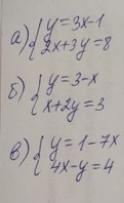 а) { y = 3x-1
2x+3y=8
б) { y = 3-x
x+2y=3
в) { y = 1-7x
4x-y=4